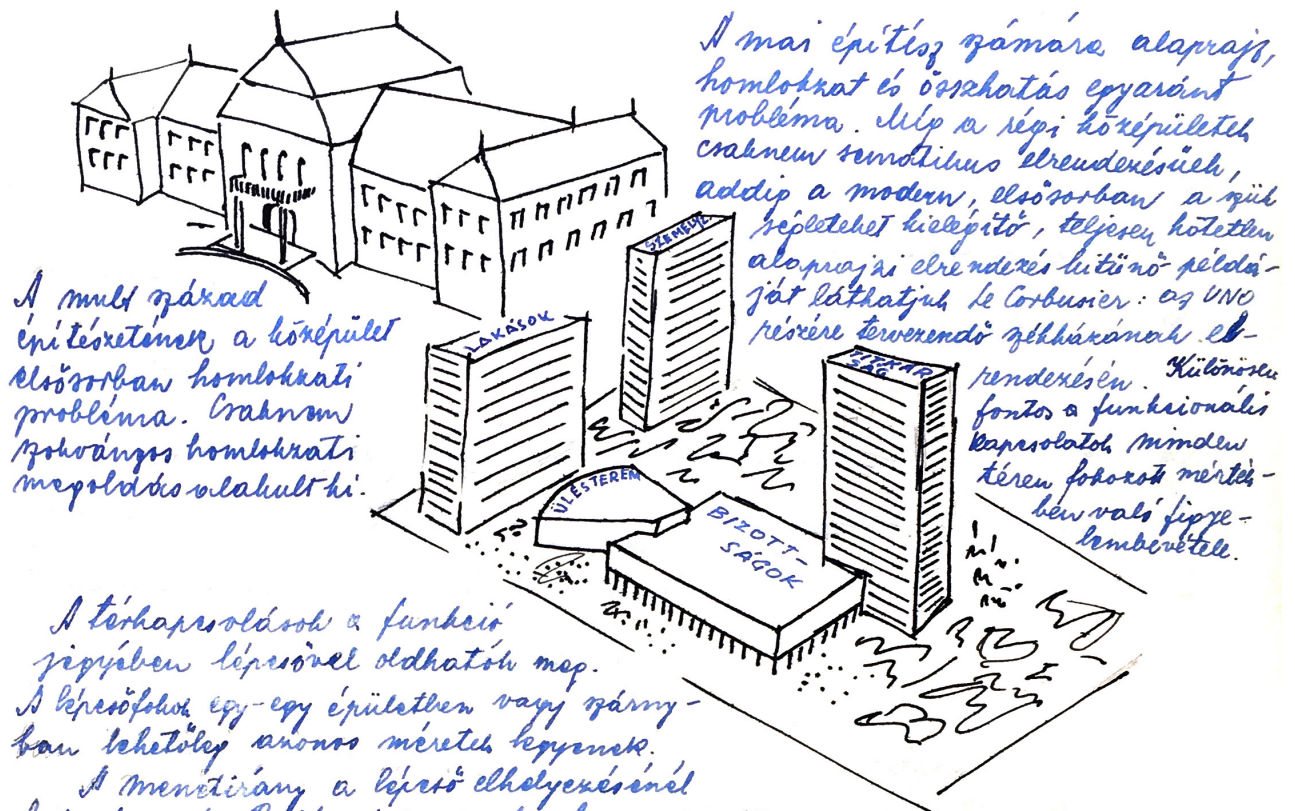 A mai építész számára alaprajz,
homlokzat és összhatás egyaránt
probléma. Míg a régi középületek
csaknem sematikus elrendezésűek,
addig a modern, elsősorban a szük
ségleteket kielégítő, teljesen kötetlen
alaprajzi elrendezés kitünő példá-
ját láthatjuk Le Corbusier: az UNO
részére tervezendő székházának el-
rendezésén. Különösen
fontos a funkcionális
kapcsolatok minden
téren fokozott mérték-
ben való figye-
lembevétele.
A mult század
építészetének a középület
elsősorban homlokzati
probléma. Csaknem
szokványos homlokzati
megoldás alakult ki.
SZEMÉLYZ
LAKÁSOK
TITKÁR
SÁG
ÜLÉSTEREM
BIZOTT-
SÁGOK
A térkapcsolások a funkció
jegyében lépcsővel oldhatók meg.
A lépcsőfokok egy-egy épületben vagy szárny-
ban lehetőleg azonos méretek legyenek.
A menetirány a lépcső elhelyezésénél